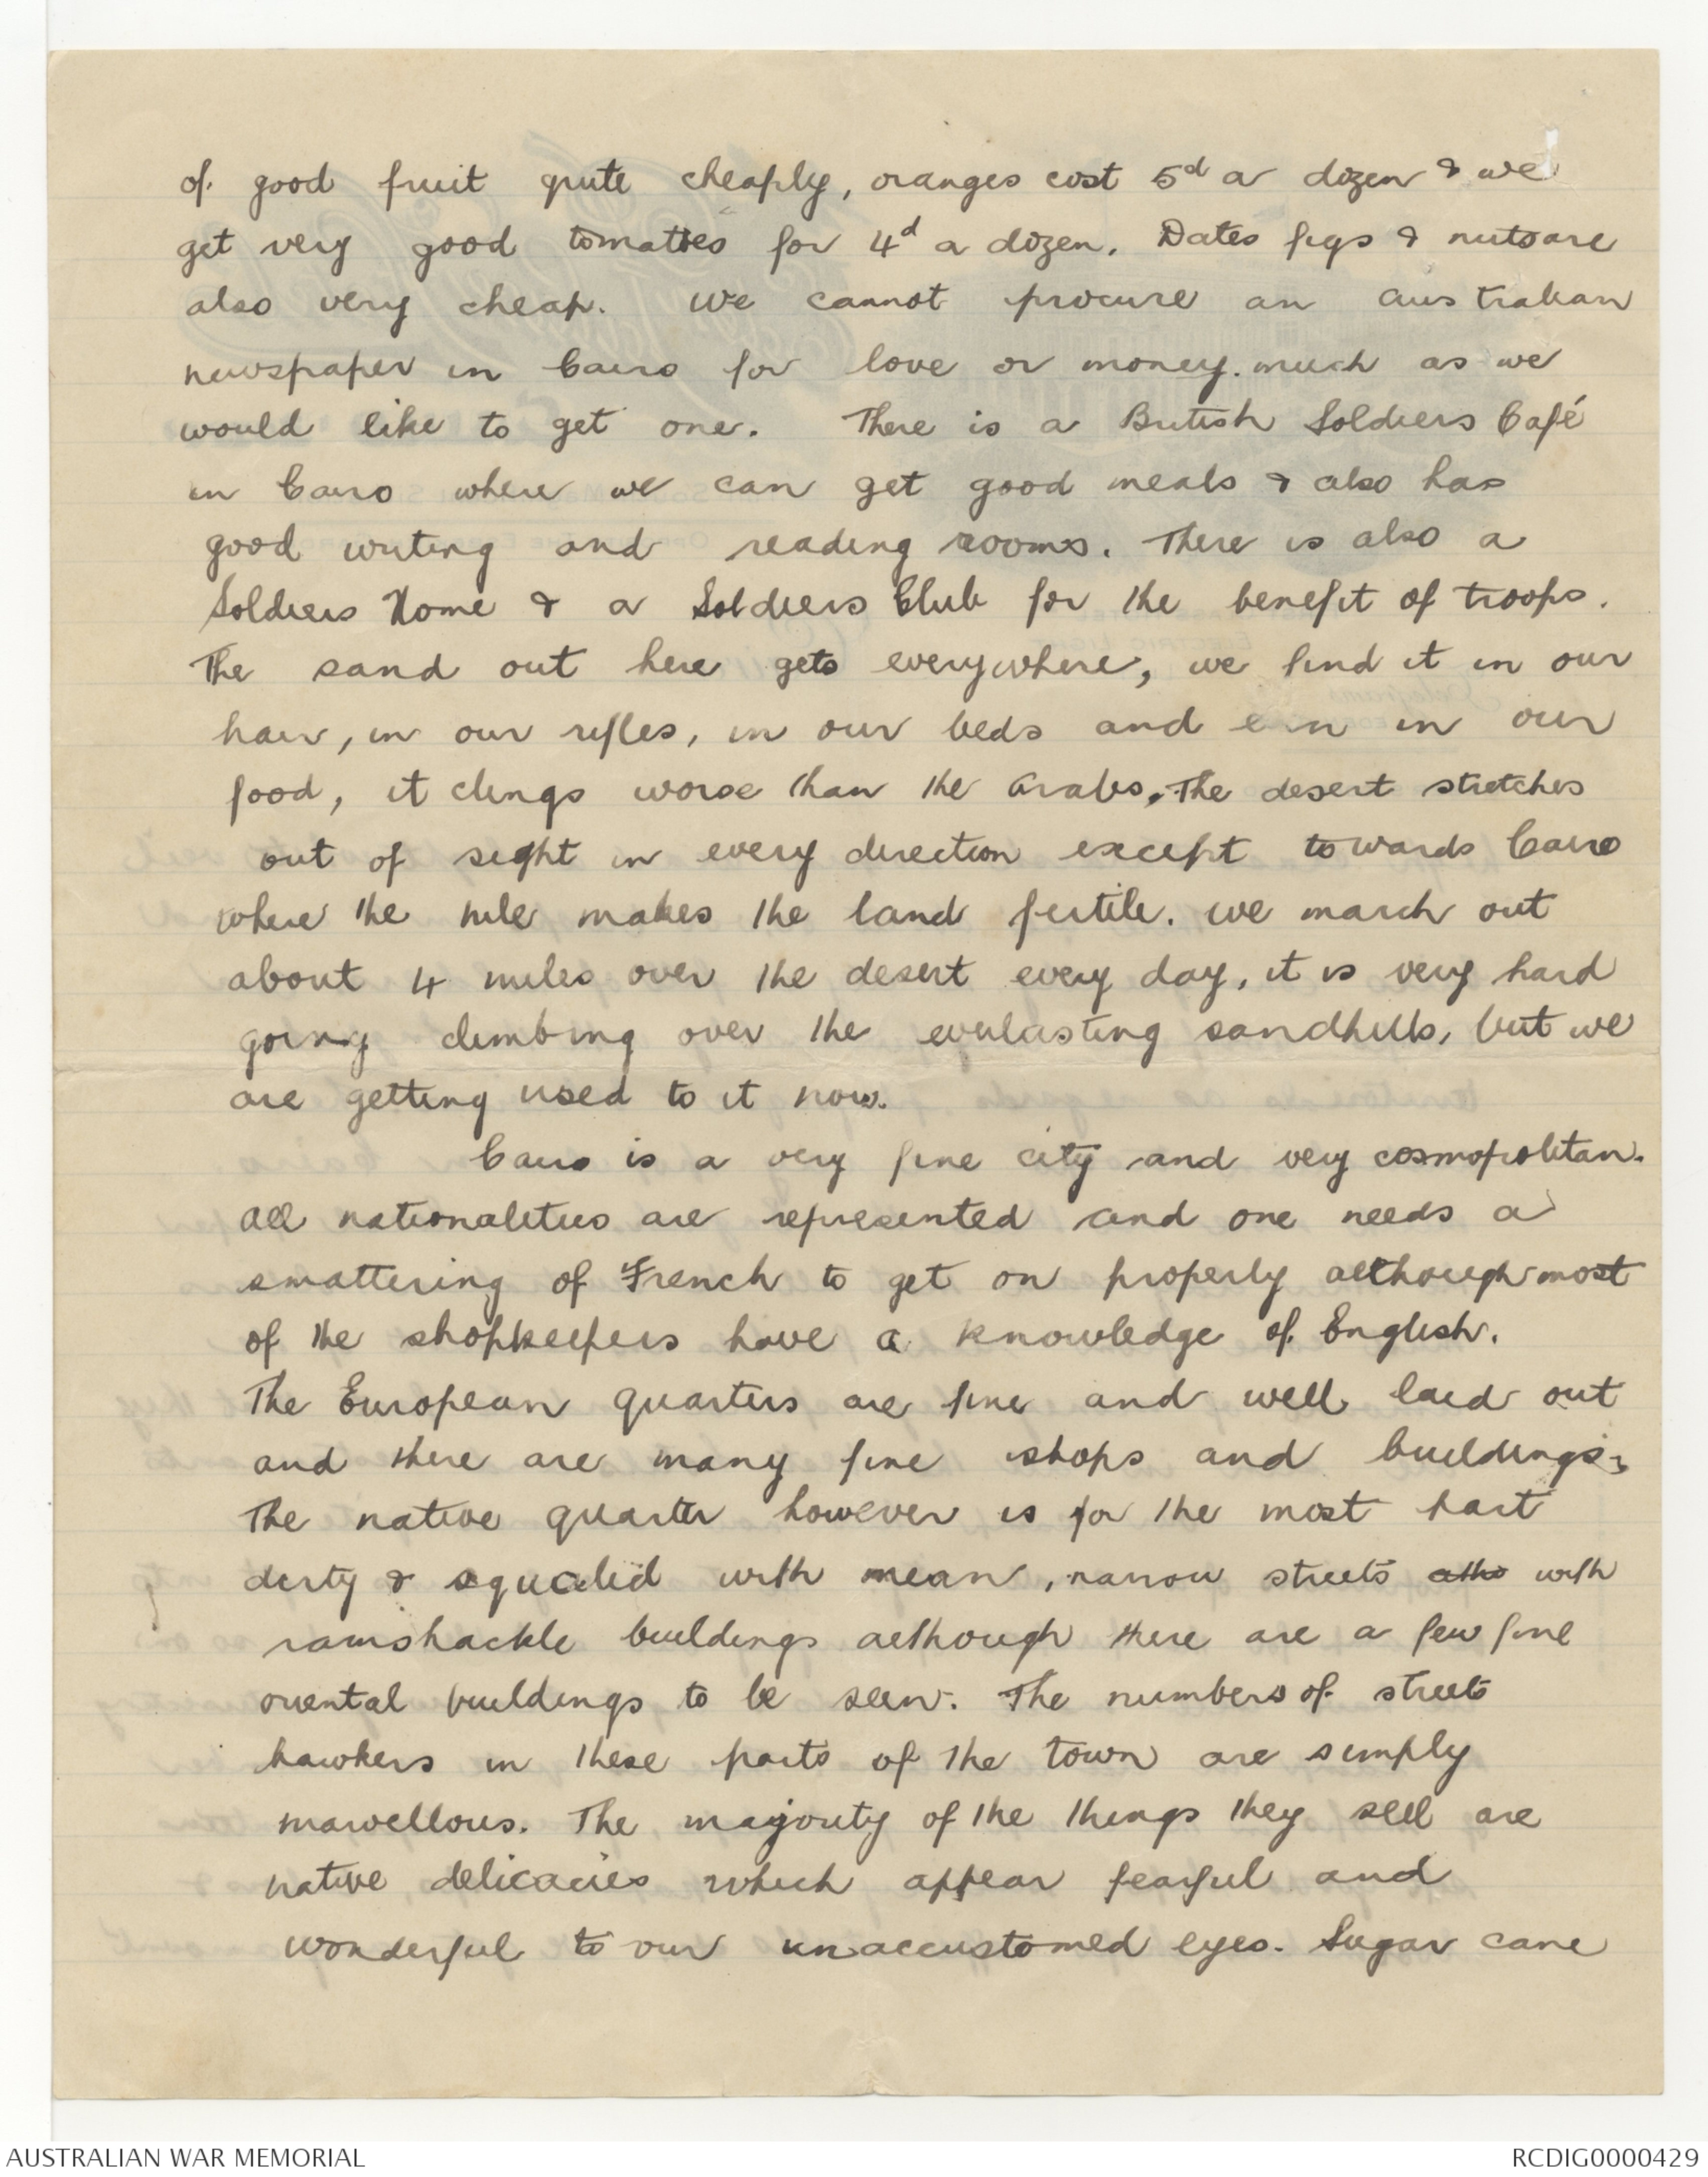 of good fruit quite cheaply, oranges cost 5d a dozen & we
get very good tomatoes for 4d a dozen. Dates figs & nuts are
also very cheap. We cannot procure an Australian
newspaper in Cairo for love or money. much as we
would like to get one. There is a British Soldiers Café
in Cairo where we can get good meals & also has
good writing and reading rooms. There is also a
Soldiers Home & a Soldiers Club for the benefit of troops.
The sand out here gets everywhere, we find it in our
hair, in our rifles, in our beds and even in our
food, it clings worse than the Arabs. The desert stretches
out of sight in every direction except towards Cairo
where the nile makes the land fertile. We march out
about 4 miles over the desert every day, it is very hard
going climbing over the everlasting sandhills, but we
are getting used to it now.
Cairo is a very fine city and very cosmopolitan.
All nationalities are represented and one needs a
smattering of French to get on properly although most
of the shopkeepers have a knowledge of English.
The European quarters are fine and well laid out
and there are many fine shops and buildings,
The native quarter however is for the most part
dirty & squalid with mean, narrow streets with
ramshackle buildings although there are a few fine
oriental buildings to be seen. The numbers of streets
hawkers in these parts of the town are simply
marvellous. The majority of the things they sell are
native delicacies which appear fearful and
wonderful to our unaccustomed eyes. Sugar cane
AUSTRALIAN WAR MEMORIAL
RCDIG0000429